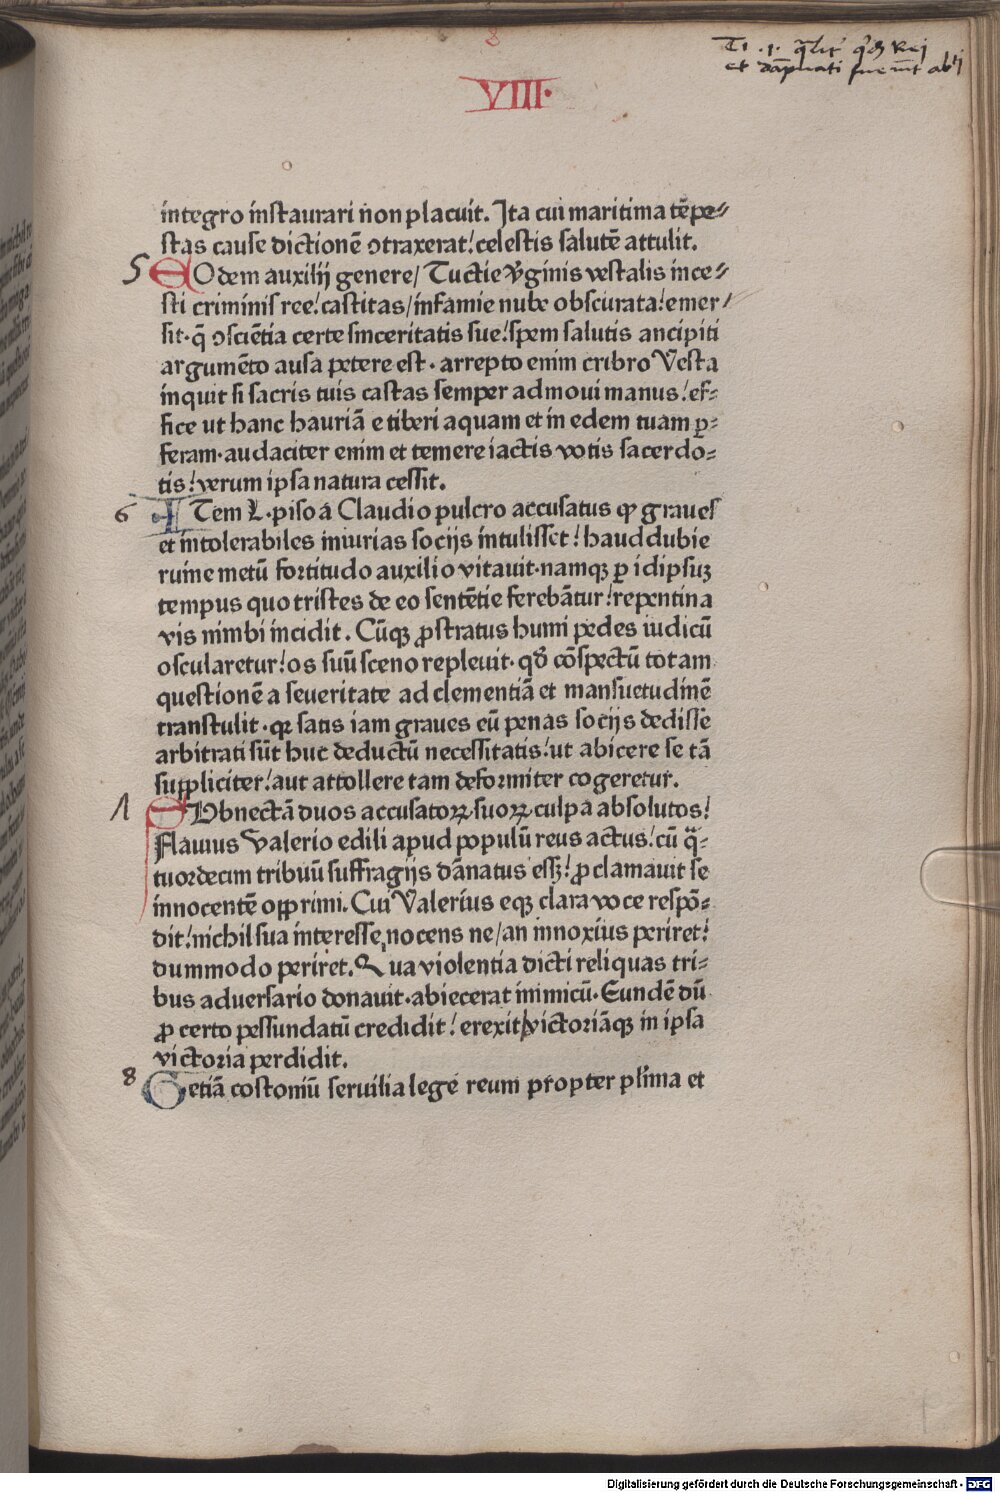 8
Ti .1. q̄lit' q'd Rei
et dāpnati fuerūt ab
VIII·
integro instaurari non placuit. Ita cui maritima tēpe⸗
stas cause dictionē ↄtraxerat! celestis salutē attulit.
5 EOdem auxilij genere/ Tuctie v̓ginis vestalis ince⸗
sti criminis ree! castitas/infamie nube obscurata! emer⸗
sit·q̄ ↄsciētia certe sinceritatis sue! spem salutis ancipiti
argumēto ausa petere est· arrepto enim cribro Vesta
inquit si sacris tuis castas semper admoui manus! ef⸗
fice ut hanc hauriā e tiberi aquam et in edem tuam ꝑ⸗
feram·audaciter enim et temere iactis votis sacerdo⸗
tis! verum ipsa natura cessit.
6 ITem L·piso a Claudio pulcro accusatus ꝙ graues
et intolerabiles iniurias socijs intulisset! haud dubie
ruine metū fortitudo auxilio vitauit·namqꝫ ꝑ idipsuꝫ
tempus quo tristes de eo sentētie ferebātur! repentina
vis nimbi incidit. Cūqꝫ ꝓstratus humi pedes iudicū
oscularetur! os suū sceno repleuit· qđ cōspectū totam
questionē a seueritate ad clementiā et mansuetudinē
transtulit·qꝛ satis iam graues eū penas socijs dedisse
arbitrati sūt huc deductū necessitatis! ut abicere se tā
suppliciter! aut attollere tam deformiter cogeretur.
Λ SUbnectā duos accusatoꝝ suoꝝ culpa absolutos!
Flauius Valerio edili apud populū reus actus! cū q̄⸗
tuordecim tribuū suffragijs dānatus esꝫ! ꝓclamauit se
innocentē opprimi. Cui Valerius eqꝫ clara voce respō⸗
dit! nichil sua interesse nocens ne/an innoxius periret!
dummodo periret. Qua violentia dicti reliquas tri⸗
bus aduersario donauit·abiecerat inimicū·Eundē dū
ꝓ certo pessundatū credidit! erexit victoriāqꝫ in ipsa
victoria perdidit.
8 Getiā costoniū seruilia lege reum propter plīma et
Digitalisierung gefördert durch die Deutsche Forschungsgemeinschaft - DFG